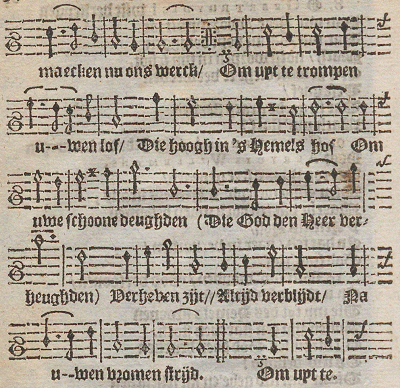 maecken nu ons werck/ Om upt te trompen
u--- wen lof/ Die hoogh in 's Hemels hof Om
uwe schoone deughden (Die God den Heer ver-
heughden) Verheven zijt// Altijd verblijdt/ Na
u-- wen vromen strijd. Om upt te.